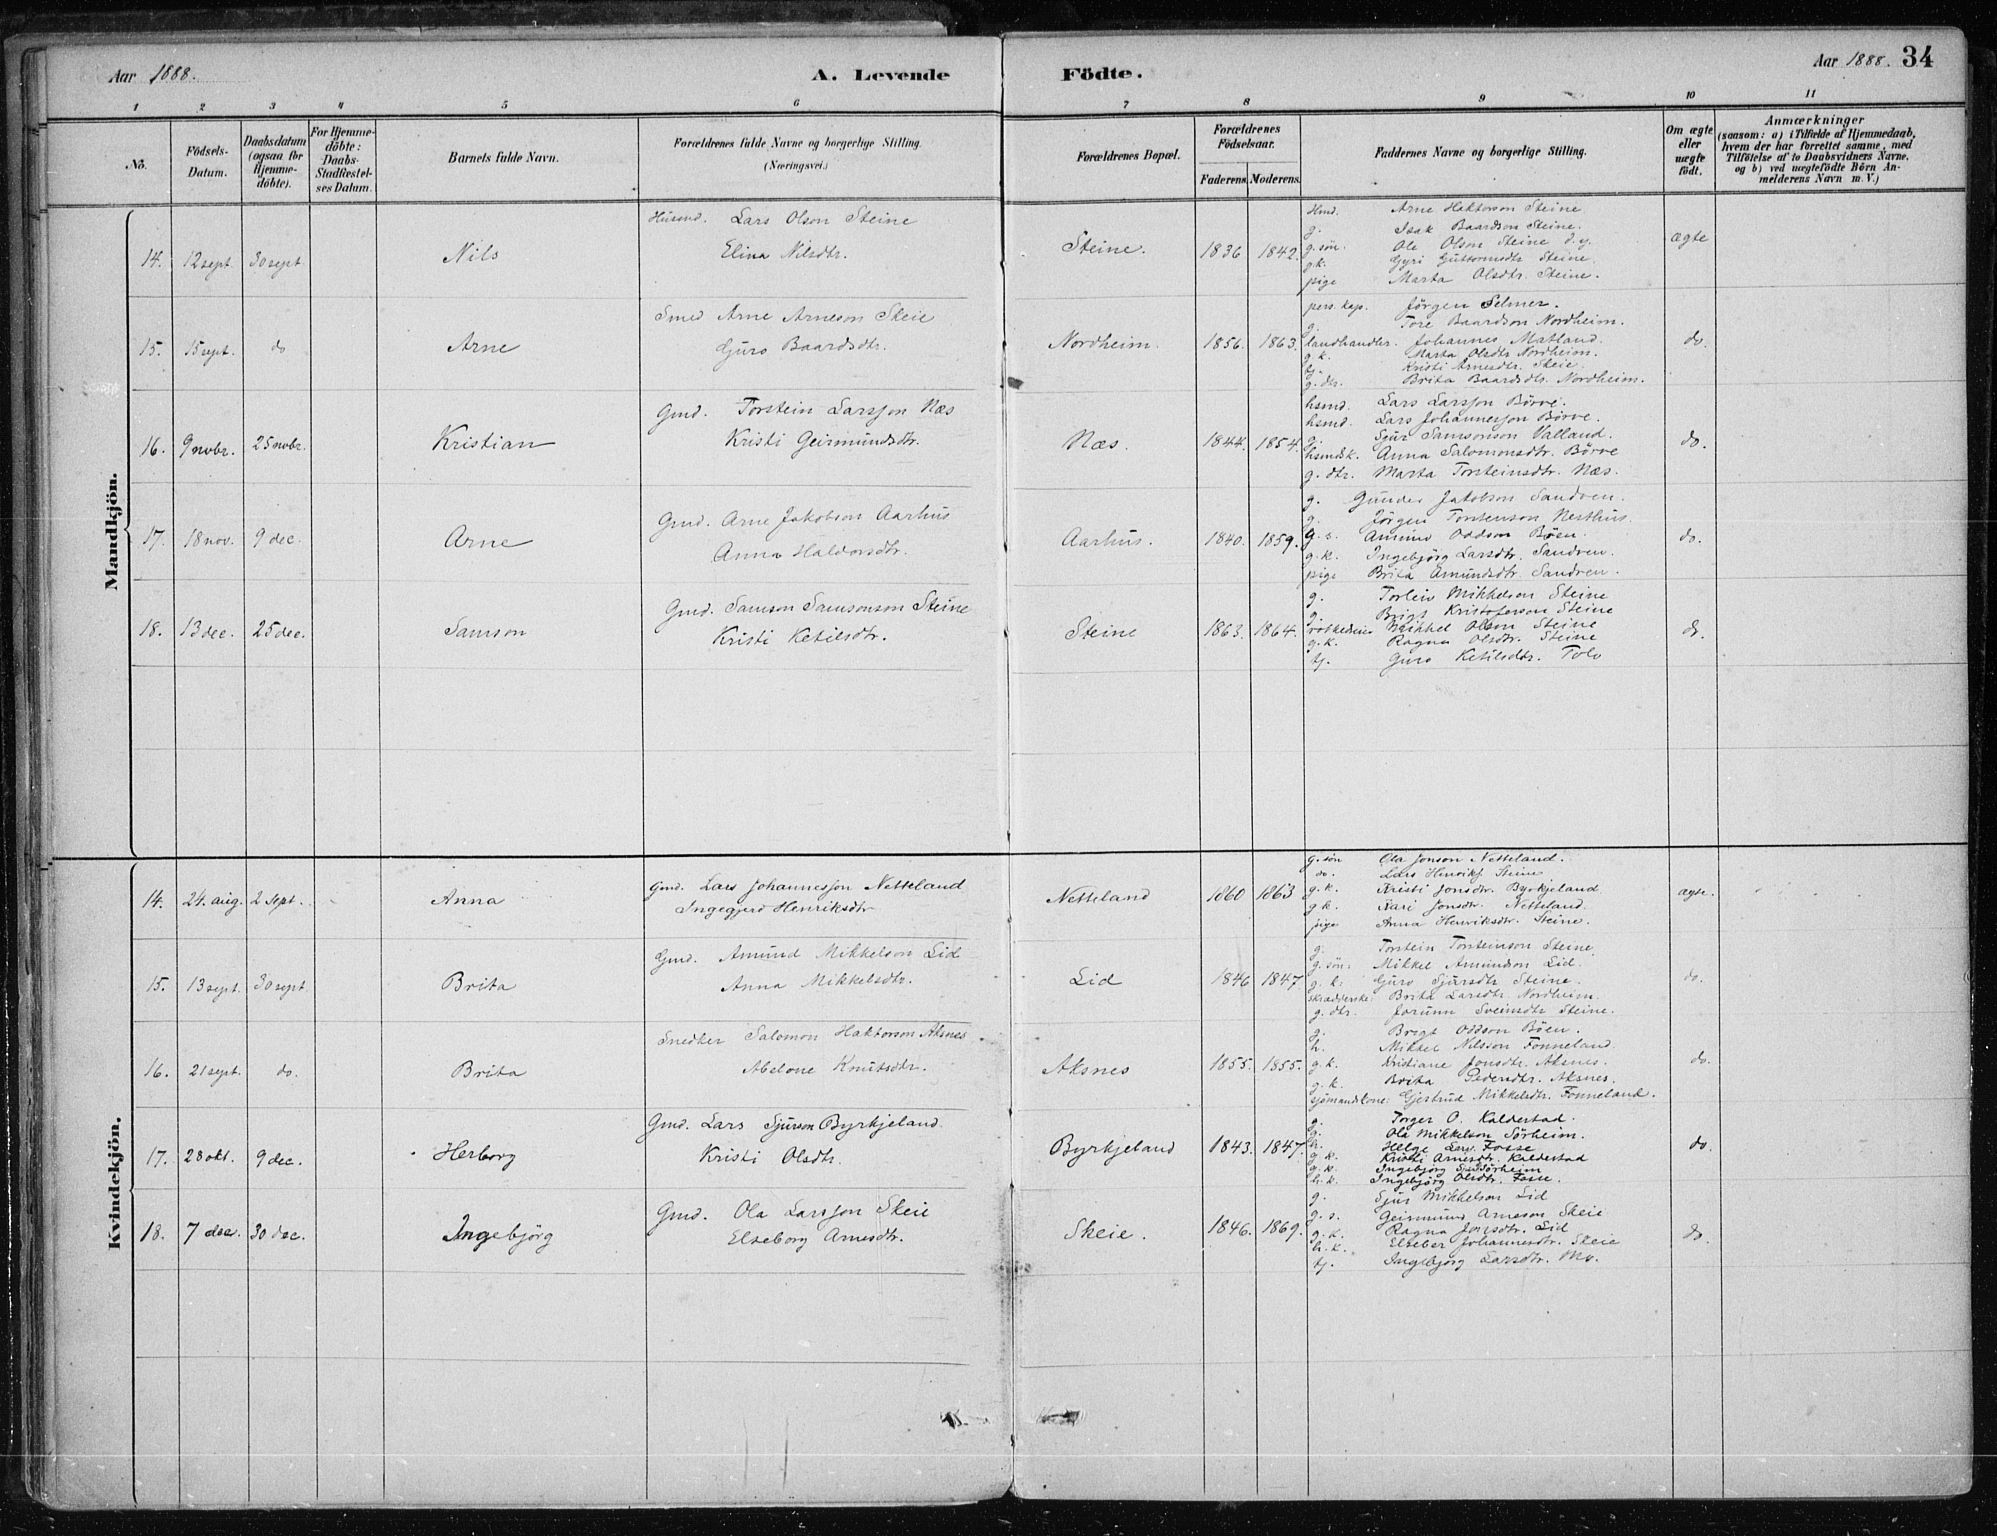 Aar 1888.
A. Levende
Födte.
Aar 1888.
34
1 2 3 4 5 6 7 8 9 10 11
No.
Födsels-
Datum.
Daabsdatum
(ogsaa for
Hjemme-
döbte).
For Hjemme-
döbte:
Daabs-
Stadfæstel-
ses Datum.
Barnets fulde Navn.
Forældrenes fulde Navne og borgerlige Stilling.
(Næringsvei.)
Forældrenes Bopæl.
Forældrenes
Födselsaar.
Faderens.
Moderens.
Faddernes Navne og borgerlige Stilling.
Om ægte
eller
uægte
født.
Anmærkninger
(saasom: a) i Tilfælde af Hjemmedaab,
hvem der har forrettet samme, med
Tilföielse af to Daabsvidners Navne,
og b) ved uægtefödte Börn An-
melderens Navn m. V.)
Mandkjön.
14. 12 sept. 30 sept. Nils
Husmd. Lars Olson Steine
Elina Nilsdtr.
Steine. 1836 1842.
Hmd. Arne Haktorson Steine
g. Isak Baardson Steine.
g. sön. Ole Olson Steine d.y.
g.k. Gyri Guttormsdtr Steine.
pige Marta Olsdtr. Steine.
ægte
15. 15 sept. do Arne
Smed Arne Arneson Skeie
Guro Baardsdtr.
Nordheim. 1856. 1863.
pers. kap. Jörgen Selmer.
g. Tore Baardson Nordheim.
landhandler. Johannes Matland.
g.k. Marta Olsdtr Nordheim.
tj. Kristi Arnesdtr. Skeie.
g. dtr. Brita Baardsdtr. Nordheim.
do.
16. 9 novbr. 25 novbr. Kristian
Gmd. Torstein Larsson Næs
Kristi Geirmundsdtr.
Næs. 1844. 1854.
hsmd. Lars Larsson Börve.
hsmd. Lars Johannesson Börve.
g. Sjur Samsonson Valland.
hsmdsk. Anna Salomonsdtr. Börve
g. dtr. Marta Torsteinsdtr. Næs.
do.
17. 18 nov. 9 dec. Arne
Gmd. Arne Jakobson Aarhus
Anna Haldorsdtr.
Aarhus. 1840. 1859.
g. Gunder Jakobson Sandven.
g. Jörgen Torstenson Nesthus.
g. s. Amund Oddson Böen.
g.k. Ingebjörg Larsdtr. Sandven.
pige Brita Amundsdtr. Sandven.
do.
18. 13 dec. 25 dec. Samson
Gmd. Samson Samsonson Steine
Kristi Ketilsdtr.
Steine 1863. 1864.
g. Torleiv Mikkelson Steine
g. Brigt Kristoferson Steine
Mikkel Olson Steine
g.k. Ragna Olsdtr. Steine
tj. Guro Ketilsdtr. Tolo
do.
Kvindekjön.
14. 24. aug. 2 sept. Anna
Gmd. Lars Johannesson Netteland
Ingegjerd Henriksdtr
Netteland 1860 1863
g. sön Ola Jonson Netteland.
do. Lars Henriks. Steine
g.k. Kristi Jonsdtr. Byrkjeland
g.k. Kari Jonsdtr. Netteland.
pige Anna Henriksdtr. Steine.
ægte.
15. 13 sept. 30 sept. Brita
Gmd. Amund Mikkelson Lid
Anna Mikkelsdtr.
Lid 1846 1847
g. Torstein Torsteinson Steine
g. sön: Mikkel Amundson Lid.
g. k. Guro Sjursdtr Steine.
skrædderske: Brita Larsdtr Nordheim.
g. dtr. Jorunn Sveinsdtr Steine.
do.
16. 21 sept. do. Brita
Snedker Salomon Haktorson Aksnes
Abelone Knutsdtr.
Aksnes 1855. 1855.
g. Brigt Oddson Böen.
h. Mikkel Nilsson Fonneland
g.k. Kristiane Jonsdtr. Aksnes.
g.k. Brita Pedersdtr. Aksnes.
sjömandkone: Gjertrud Mikkelsdtr. Fonneland.
do.
17. 28 okt. 9 dec. Herborg
Gmd. Lars Sjurson Byrkjeland
Kristi Olsdtr.
Byrkjeland 1843. 1847.
g. Torger O. Kaldestad.
g. Ola Mikkelson Sörheim.
h. Helge Lars. Fosse
g.k. Kristi Arnesdtr. Kaldestad
g.k. Ingebjörg Sjurs. Sörheim
h.k. Ingebjörg Olsdtr. Fosse.
do.
18. 7 dec. 30 dec. Ingebjörg
Gmd. Ola Larsson Skeie
Elseborg Arnesdtr.
Skeie. 1846. 1869.
g. Sjur Mikkelson Lid
g. s. Geirmund Arneson Skeie
g.k. Ragna Jonsdtr. Lid
h.k. Elseber Johannesdtr. Skeie
tj. Ingebjörg Larsdtr. Mo.
do.